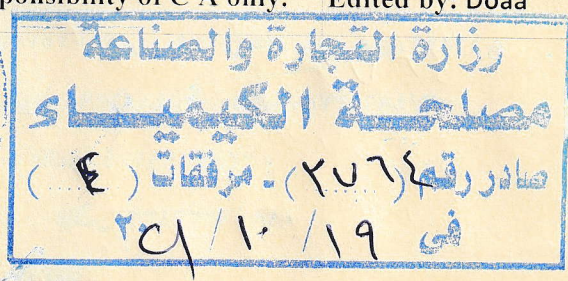 ponsibility of C A only. Edited by: Doaa
وزارة التجارة والصناعة
مصلحة الكيميـــاء
صادر رقم (٢٧٦٤) - مرفقات (٤)
في ١٩ / ١٠ / ٢٠٢١